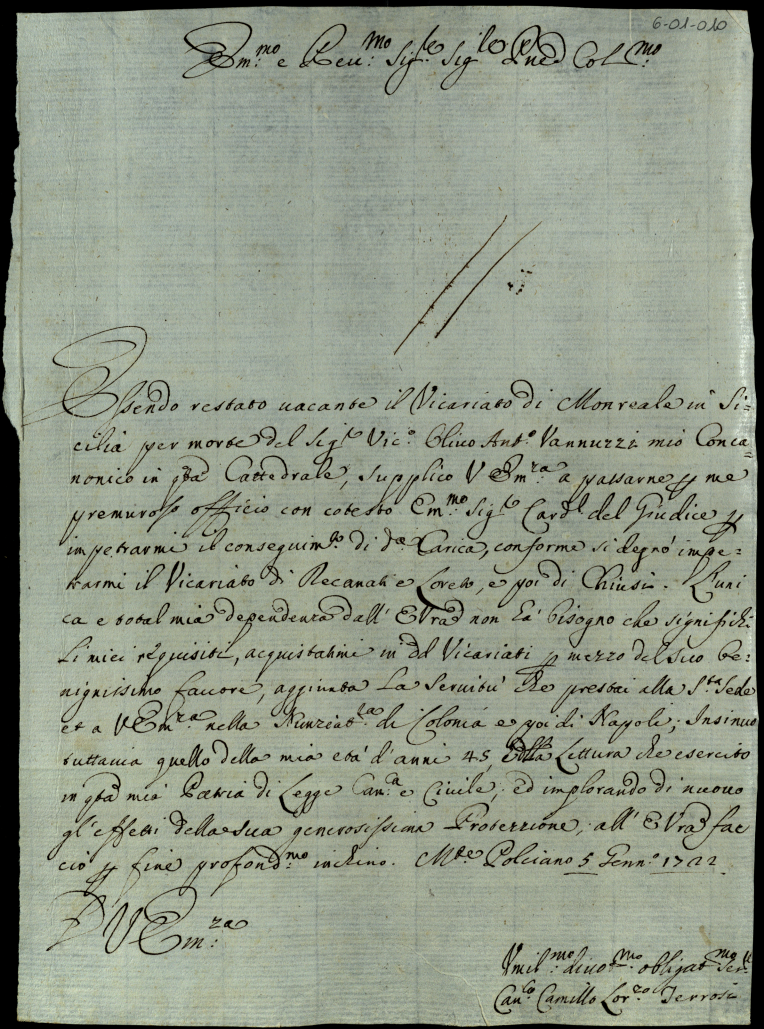 6-01-010
Em:mo e Reu:mo Sig:re Sig:re Pne Col:mo
Essendo restato uacante il Vicariato di Monreale in Si=
cilia per morte del Sig:re Vic:o Oliuo Ant:o Vannuzzi mio Conca=
nonico in q:ta Cattedrale, supplico V Em:za a passarne p me
premuroso officio con cotesto Em:mo Sig:re Card:l del Giudice p
impetrarmi il conseguim:to di d:a Carica, conforme si degnò impe=
trarmi il Vicariato di Recanati e Loreto, e poi di Chiusi. L'uni
ca e total mia dependenza dall' EVra non hà bisogno che significhi
li miei requisiti, acquistatimi in dd Vicariati p mezzo del suo be=
nignissimo fauore, aggiunta la seruitù che prestai alla S:ta Sede
et a VEm:za nella Nunziat:ra di Colonia e poi di Napoli; Insinuo
tuttauia quello della mia età d'anni 45 della Lettura che esercito
in q:ta mia Patria di Legge Can:ca e Ciuile; ed implorando di nuouo
gl'effetti della sua generosissima Protezzione, all' EVra fac
cio p fine profond:mo inchino. M:te Polciano 5 Genn:o 1722
D' V Em:za
Vmil:mo diuot:mo obligat:mo Ser:re
Can:co Camillo Lor:zo Terrosi